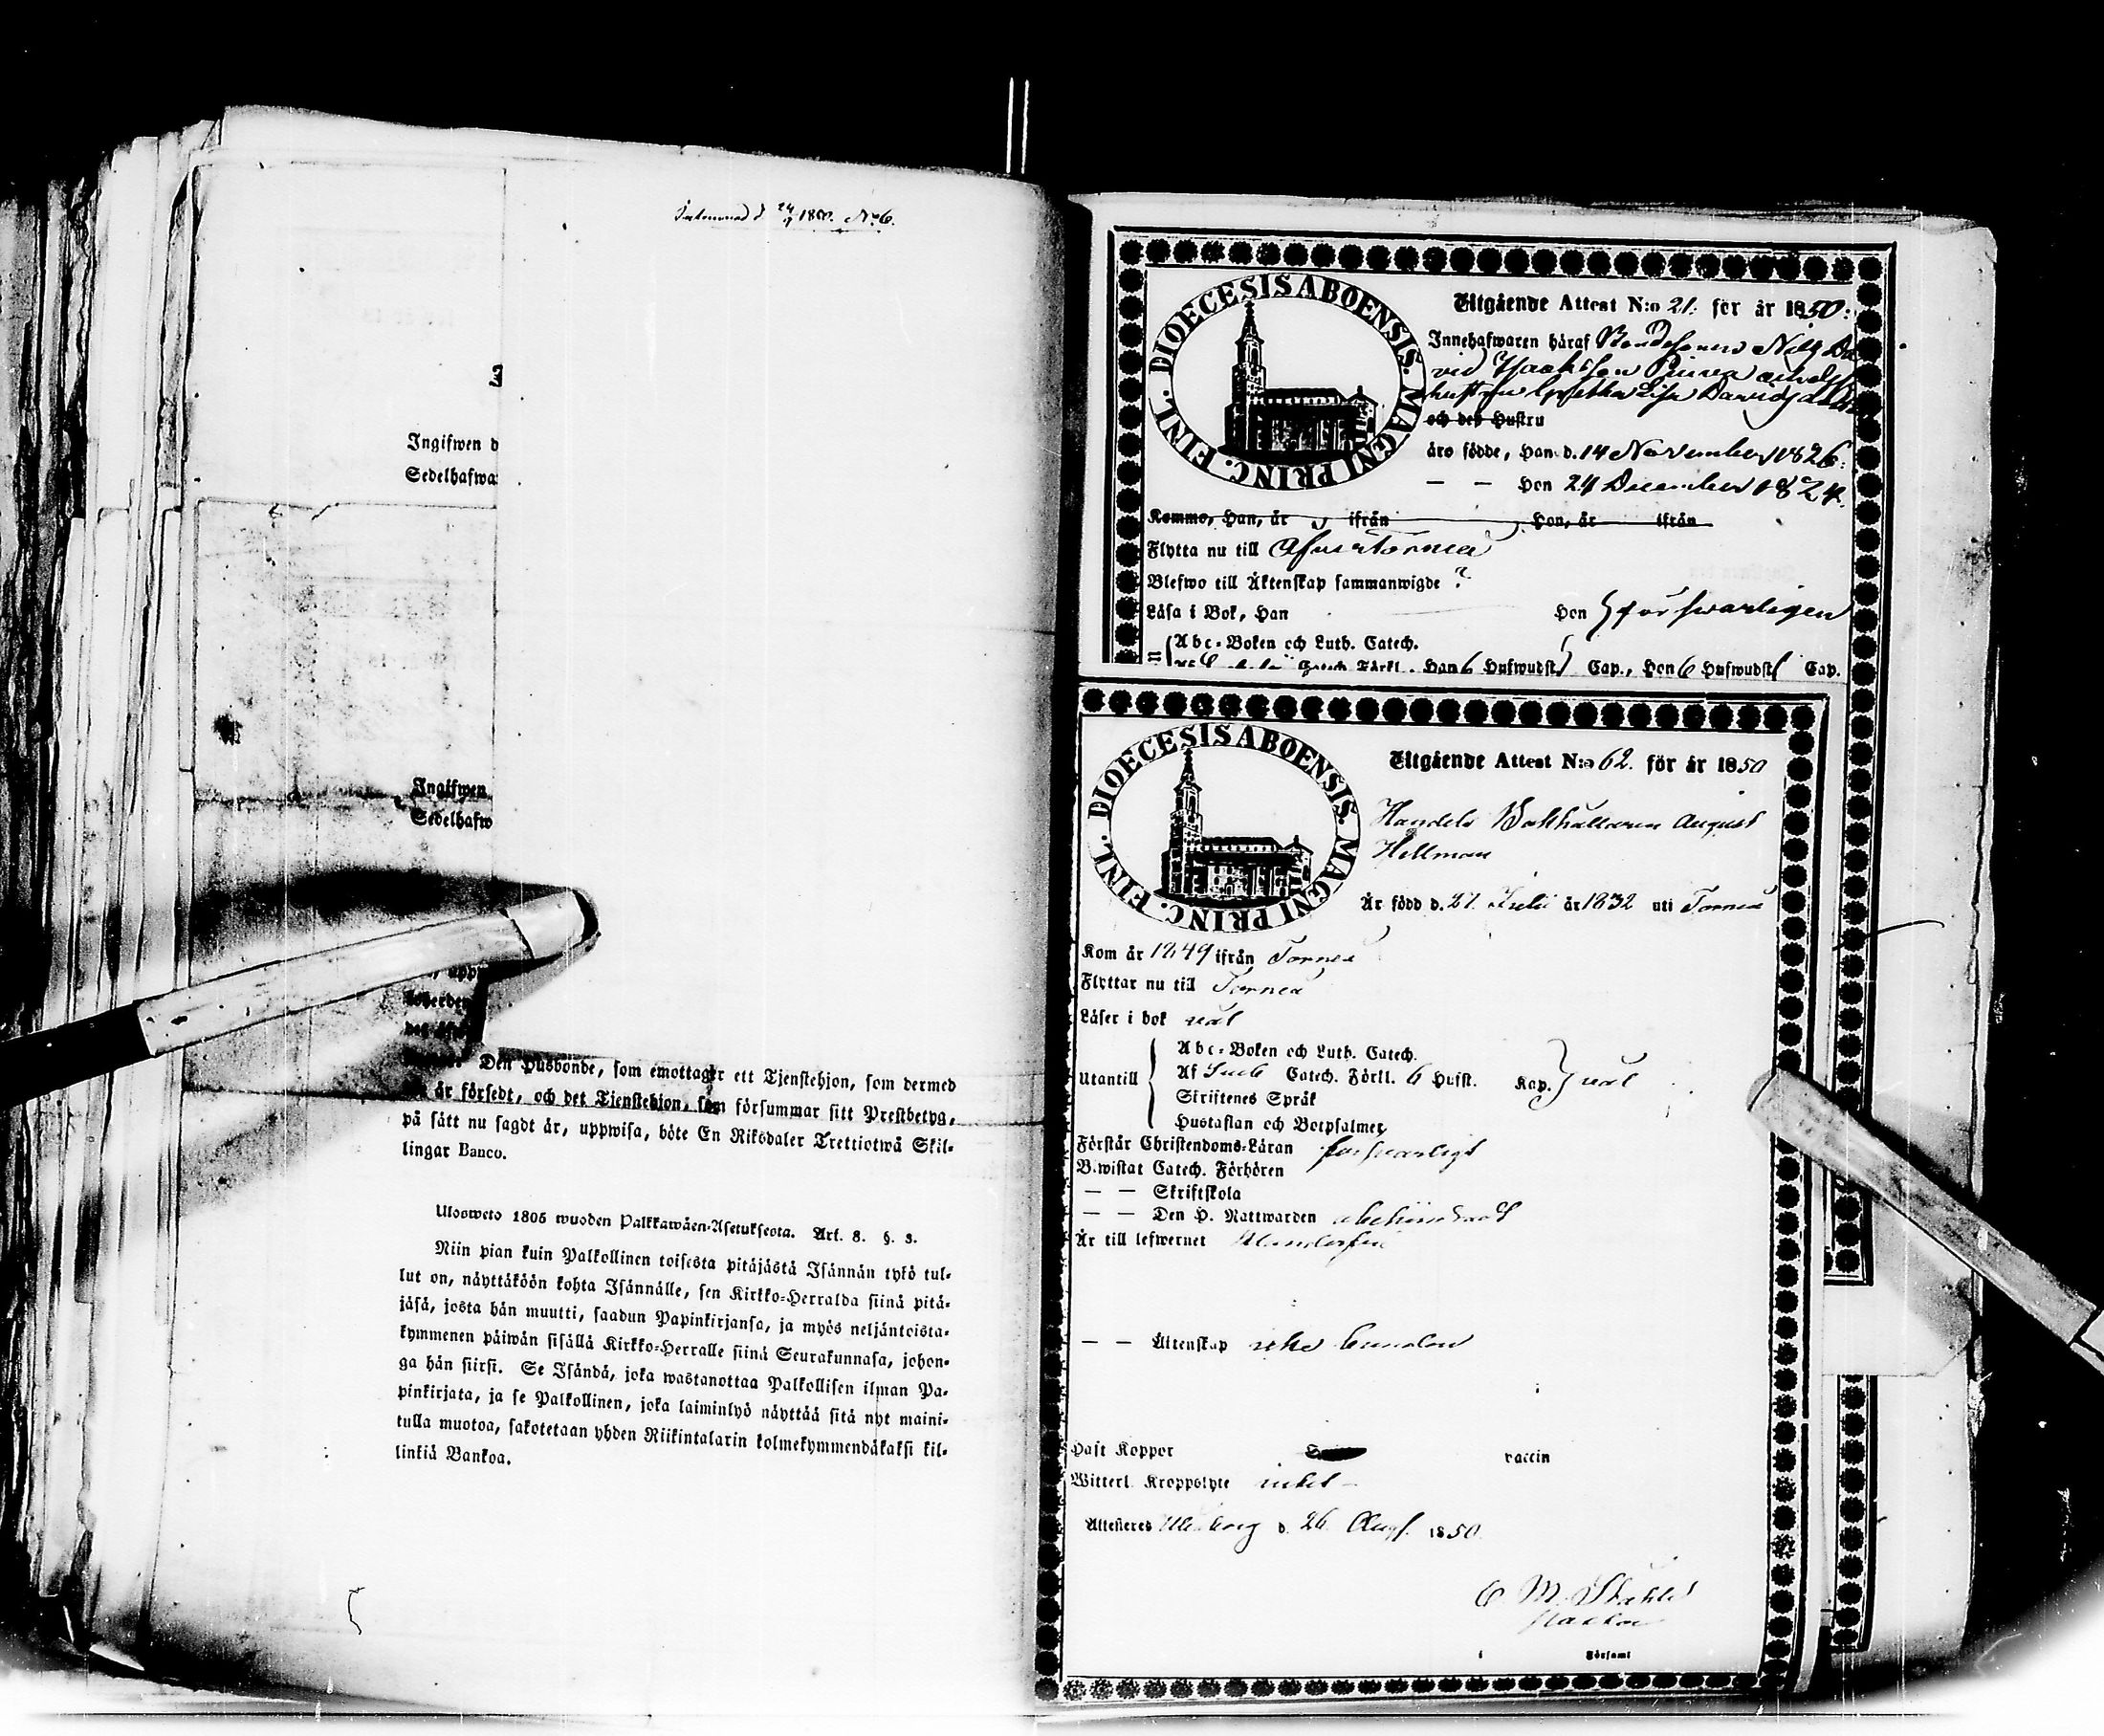 d. 24/9 1850. No 6.
3
Ingifwen d
Sedelhafwa
Ingifwen
Sedelhafw
Den Husbonde, som emottager ett Tjenstehjon, som dermed
är försedt, och det Tjenstehjon, som försummar sitt Prestbetyg,
på sätt nu sagdt är, uppwisa, böte En Riksdaler Trettiotwå Skil-
lingar Banco.
Ulosweto 1805 wuoden Palkkawäen-Asetuksesta. Art. 8. §. 3.
Niin pian kuin Palkollinen toisesta pitäjästä Isännän tykö tul-
lut on, näyttäköön kohta Isännälle, sen Kirkko-Herralda siinä pitä-
jäsä, josta hän muutti, saadun Papinkirjansa, ja myös neljäntoista-
kymmenen päiwän sisällä Kirkko-Herralle siinä Seurakunnasa, johon-
ga hän siirsi. Se Isändä, joka wastanottaa Palkollisen ilman Pa-
pinkirjata, ja se Palkollinen, joka laiminlyö näyttää sitä nyt maini-
tulla muotoa, sakotetaan yhden Riikintalarin kolmekymmendäkaksi kil-
linkiä Bankoa.
DIOECESIS ABOENSIS. MAGNI PRINC. FINL.
Utgående Attest N:o 21. för år 1850.
Innehafwaren häraf Bondesonen Nils Da
vid Isaksson
hustru Greta Lisa Davidsdotter
och des Hustru
äro födde, Han d. 14 November 1826.
— — Hon 24 December 1824.
Kommo, Han, år ifrån Hon, år ifrån
Flytta nu till Öfvertorneå
Blefwo till Äktenskap sammanwigde ?
Läsa i Bok, Han Hon försvarligen
Abc-Boken och Luth. Catech.
Catech. Förkl. Han 6 Hufwudst. Cap., Hon 6 Hufwudst. Cap.
DIOECESIS ABOENSIS. MAGNI PRINC. FINL.
Utgående Attest N:o 62. för år 1850
Handels Bokhållaren August
Hellman
Är född d. 27 Julii år 1832 uti Torneå
Kom år 1849 ifrån Torneå
Flyttar nu till Torneå
Läser i bok väl
Utantill
Abc-Boken och Luth. Catech.
Af Sveb. Catech. Förkl. 6 Hufst. Kap. väl
Skriftenes Språk
Hustaflan och Botpsalmer
Förstår Christendoms-Läran försvarligt
Bewistat Catech. Förhören
— — Skriftskola
— — Den H. Nattwarden obehindradt
Är till lefwernet klanderfri
— — Äktenskap icke bunden
Haft Koppor vaccin
Witterl. Kroppslyte intet —
Attesteras Uleåborg d. 26 Aug. 1850.
C M. Ståhle
Pastor
i Församl